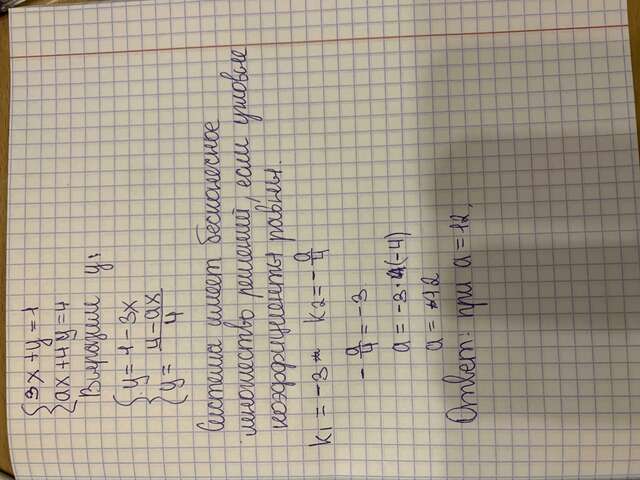 {3x+y=1
{ax+4y=4
Выразим y:
{y=1-3x
{y= (4-ax)/4
Система имеет бесконесное
множество решений, если угловые
коэффициенты равны.
k1=-3 k2=-a/4
-a/4=-3
a=-3·(-4)
a=12
Ответ: при a=12.